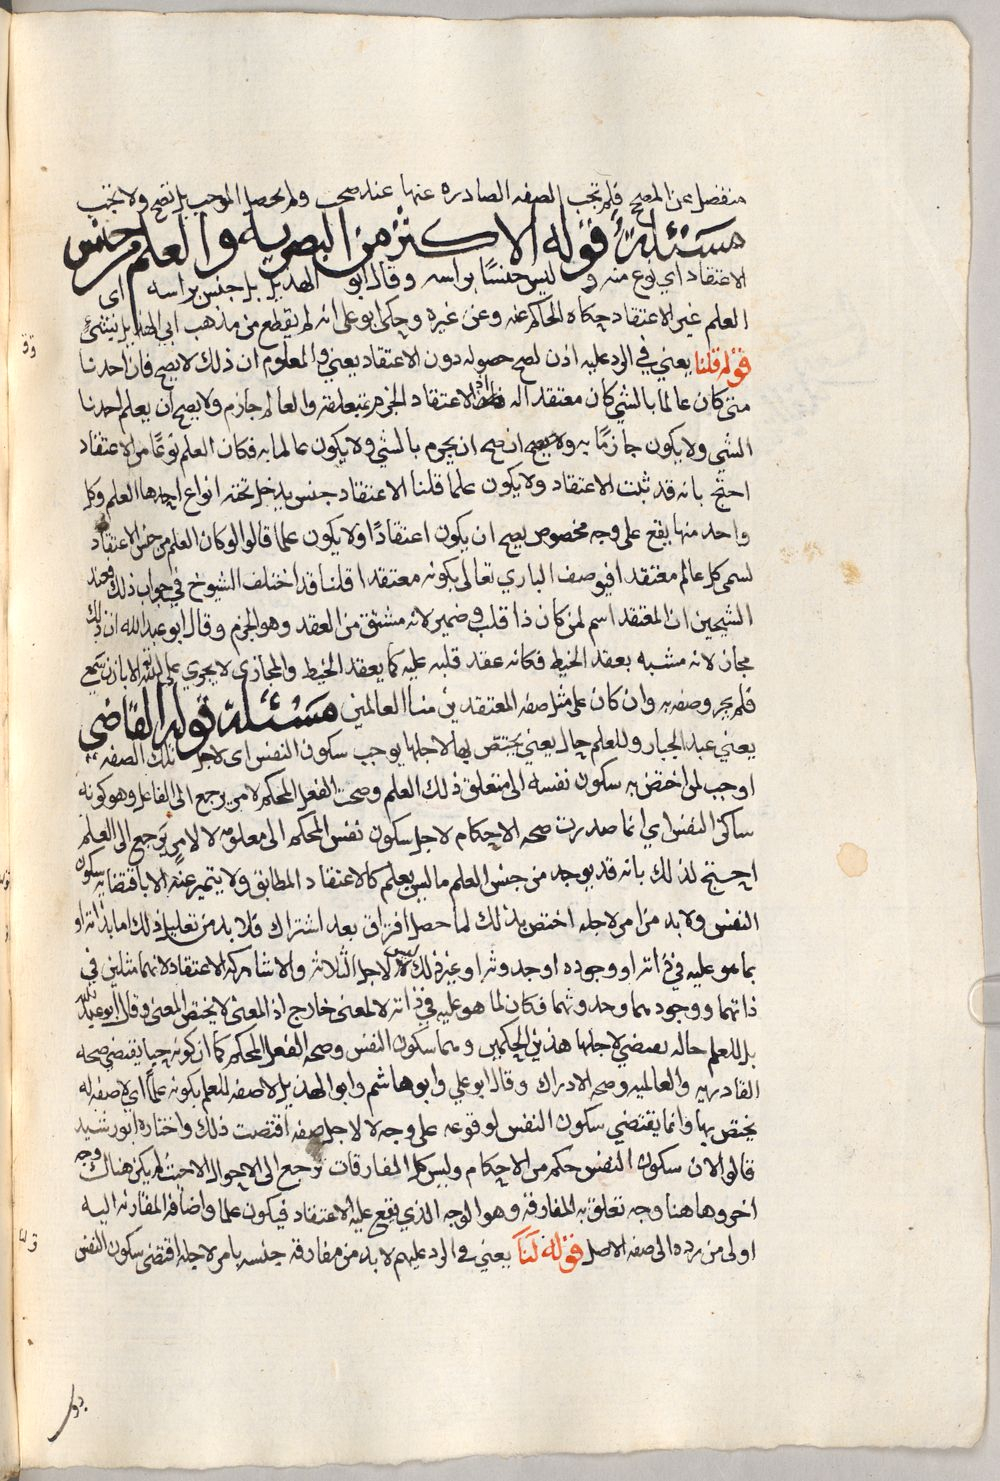 منفصل عن المصحح فلم تجب الصفه الصادره عنها عند صحب ولم يحصل الموجب بل تصح ولا تجب
مسئلة قوله الاكثر من البصريه والعلم من جنس
الاعتقاد اي نوع منه وليس جنسًا براسه وقال ابو الهذيل بل جنس براسه اى
العلم غير الاعتقاد حكاه الحاكم عنه وعن غيره وحكى ابو على انه لم يقطع من مذهب ابي الهذيل بشئ
قوله قلنا يعني في الرد عليه اذن لصح حصوله دون الاعتقاد يعني والمعلوم ان ذلك لا يصح فان احدنا
متى كان عالما بالشي كان معتقدا له اذ الاعتقاد الجزم بمتعلقه والعالم جازم ولا يصح ان يعلم احدنا
الشي ولا يكون جازمًا به ولا يصح ان يجزم بالشي ولا يكون عالما به فكان العلم نوعًا من الاعتقاد
احتج بانه قد ثبت الاعتقاد ولا يكون علما قلنا الاعتقاد جنس يدخل تحته انواع احدها العلم وكل
واحد منها يقع على وجه مخصوص يصح ان يكون اعتقادًا ولا يكون علما قالوا لو كان العلم من جنس الاعتقاد
لسمى كل عالم معتقدا فيوصف الباري تعالى بكونه معتقدا قلنا قد اختلف الشيوخ في جواب ذلك فعند
الشيخين ان المعتقد اسم لمن كان ذا قلب وضمير لانه مشتق من العقد وهو الجزم وقال ابو عبدالله ان ذلك
مجاز لانه مشبه بعقد الخيط فكانه عقد قلبه عليه كما يعقد الخيط والمجازى لا يجري على الله تعالى الا باذن سمع
فلم يجز وصفه به وان كان على مثل صفه المعتقدين منا العالمين مسئلة قوله القاضي
يعني عبد الجبار وللعلم حال يعني يختص بها لاجلها يوجب سكون النفس اى لاجل تلك الصفه
اوجب لمن اختص به سكون نفسه الى متعلق ذلك العلم وصحت الفعل المحكم لامر يرجع الى الفاعل وهو كونه
ساكن النفس اي انما صدرت صحه الاحكام لاجل سكون نفس المحكم الى معلومه لا لامر يرجع الى العلم
احتج لذلك بانه قد يوجد من جنس العلم ما ليس بعلم كالاعتقاد المطابق ولا يتميز عنه الا باقتضايه سكون
النفس ولا بد من امر لاجله اختص بذلك لما حصل افتراق بعد اشتراك فلا بد من تعليل ذلك اما بذاته او
بما هو عليه في ذاته او وجوده او حدوثه او غير ذلك ليس لاجل الثلاثه والا شاركه الاعتقاد لانهما مثلين في
ذاتهما ووجودهما وحدوثهما فكان لما هو عليه في ذاته لا لمعنى خارج اذ المعنى لا يختص المعنى وقال ابو عبدالله
بل للعلم حاله يقتضي لاجلها هذين الحكمين وهما سكون النفس وصحه الفعل المحكم كما ان كونه حيا يقتضي صحه
القادريه والعالميه وصحه الادراك وقال ابو علي وابو هاشم وابو الهذيل لا صفه للعلم بكونه علمًا اي لا صفه له
يختص بها وانما يقتضي سكون النفس لوقوعه على وجه لا لاجل صفه اقتضت ذلك واختاره ابو رشيد
قالوا لان سكون النفس حكم من الاحكام وليس كل المفارقات ترجع الى الاحوال الا حيث لم يكن هناك وجه
اخر وهاهنا وجه تعلق به المفارقه وهو الوجه الذي يقع عليه الاعتقاد فيكون علما واضافه المفارقه اليه
اولى من رده الى صفه الاصل قوله لنا يعني في الرد عليهم لا بد من مفارقه جنسه بامر لاجله اقتضى سكون النفس